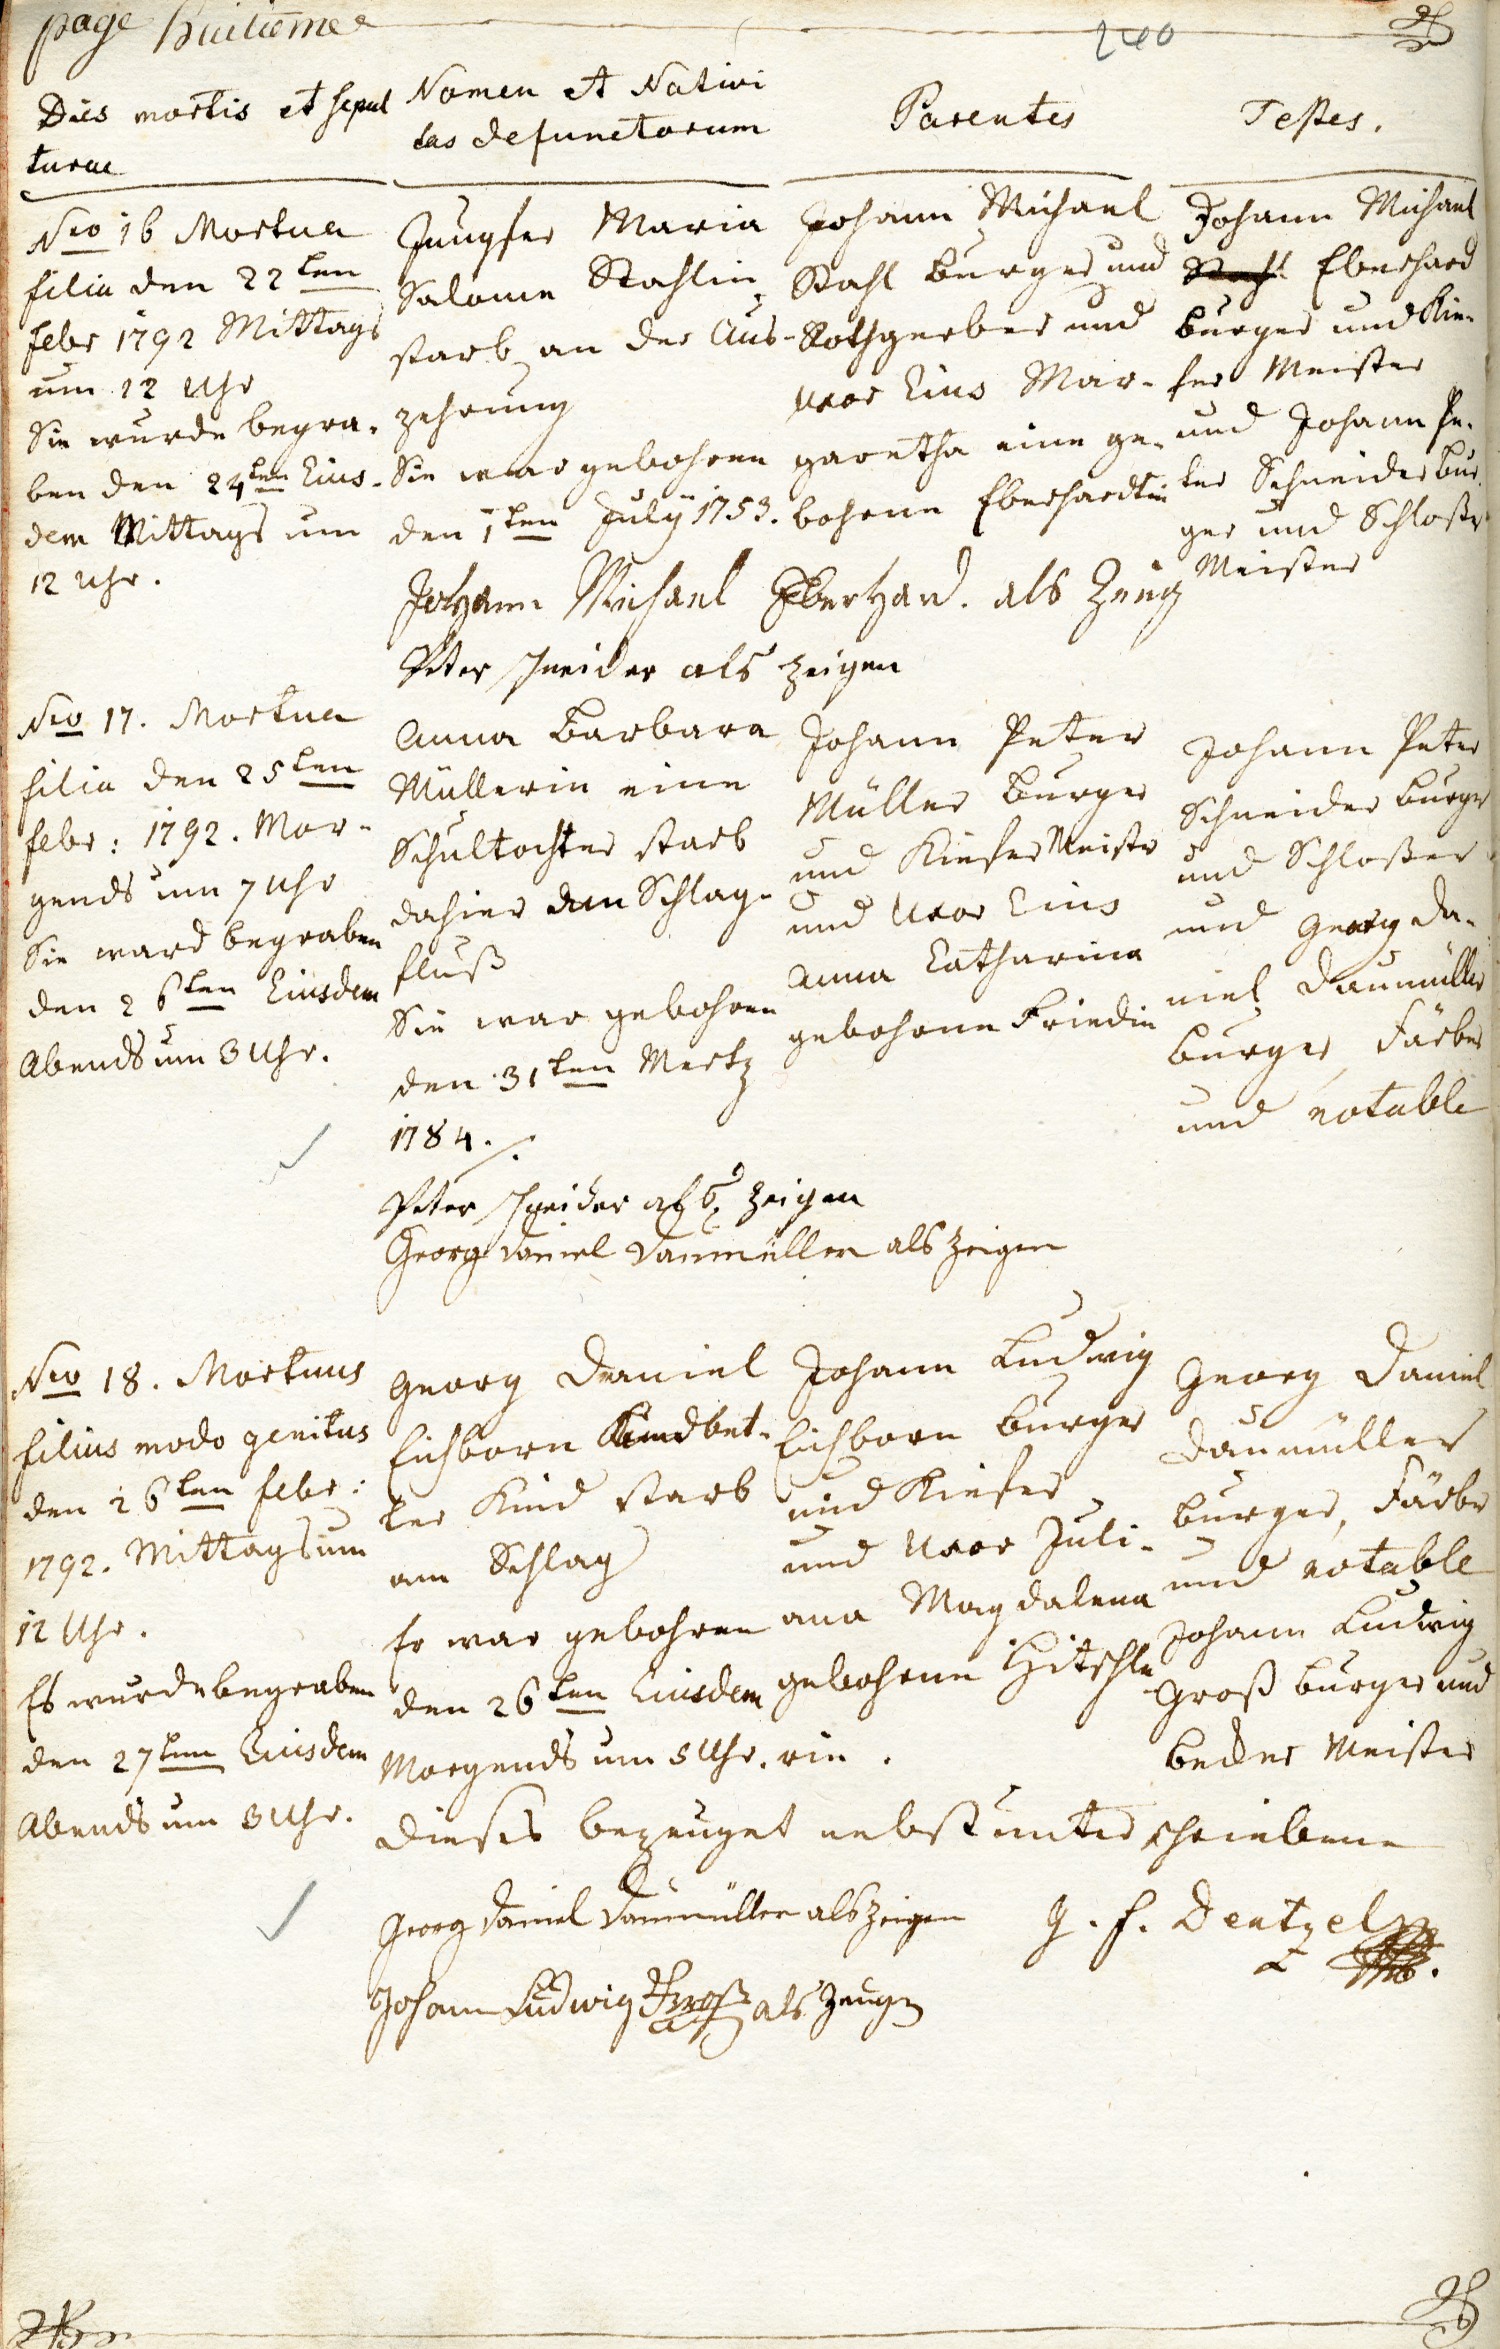 page huitieme
240
Dies mortis et sepul
turae
Nomen et Nativi
tas defunctorum
Parentes
Testes.
Nro 16 Mortua
filia den 22ten
febr 1792 Mittags
um 12 Uhr
Sie wurde begra-
ben den 24ten Eius-
dem Mittags um
12 Uhr.
Jungfer Maria
Salome Stahlin
starb an der Aus-
zehrung
Sie war gebohren
den 1ten July 1753.
Johann Michael
Stahl burger und
Rothgerber und
Uxor Eius Mar-
garetha eine ge-
bohrne Eberhardtin
Johann Michael
Stahl Eberhard
burger und Kie-
fer Meister
und Johann Pe-
ter Schneider bur-
ger und Schloßer
Meister
Johann Michael Eberhard. als Zeug
Peter schneider als zeigen
Nro 17. Mortua
filia den 25ten
febr: 1792. Mor-
gends um 7 Uhr
Sie ward begraben
den 26ten Eiusdem
Abends um 3 Uhr.
Anna Barbara
Müllerin eine
Schultochter starb
dahier am Schlag-
fluß
Sie war gebohren
den 31ten Mertz
1784.
Johann Peter
Müller burger
und Kiefer Meister
und Uxor Eius
Anna Catharina
gebohrne Friedin
Johann Peter
Schneider burger
und Schloßer
und Georg Da-
niel Daumüller
burger, Färber
und notable
Peter schneider als zeigen
Georg Daniel Daumüller als Zeigen
Nro 18. Mortuus
filius modo genitus
den 26ten febr:
1792. Mittags um
12 Uhr.
Es wurde begraben
den 27ten Eiusdem
Abends um 3 Uhr.
Georg Daniel
Eichborn Kindbet-
ter Kind starb
am Schlag
Er war gebohren
den 26ten Eiusdem
Morgends um 5 Uhr.
Johann Ludwig
Eichborn burger
und Kiefer
und Uxor Juli-
ana Magdalena
gebohrne Hitschle
rin.
Georg Daniel
Daumüller
burger, Färber
und notable
Johann Ludwig
Groß burger und
becker Meister
Dieses bezeuget nebst unterschriebene
Georg Daniel Daumüller als Zeigen
G. F. Dentzel
Johann Ludwig Groß als Zeuge